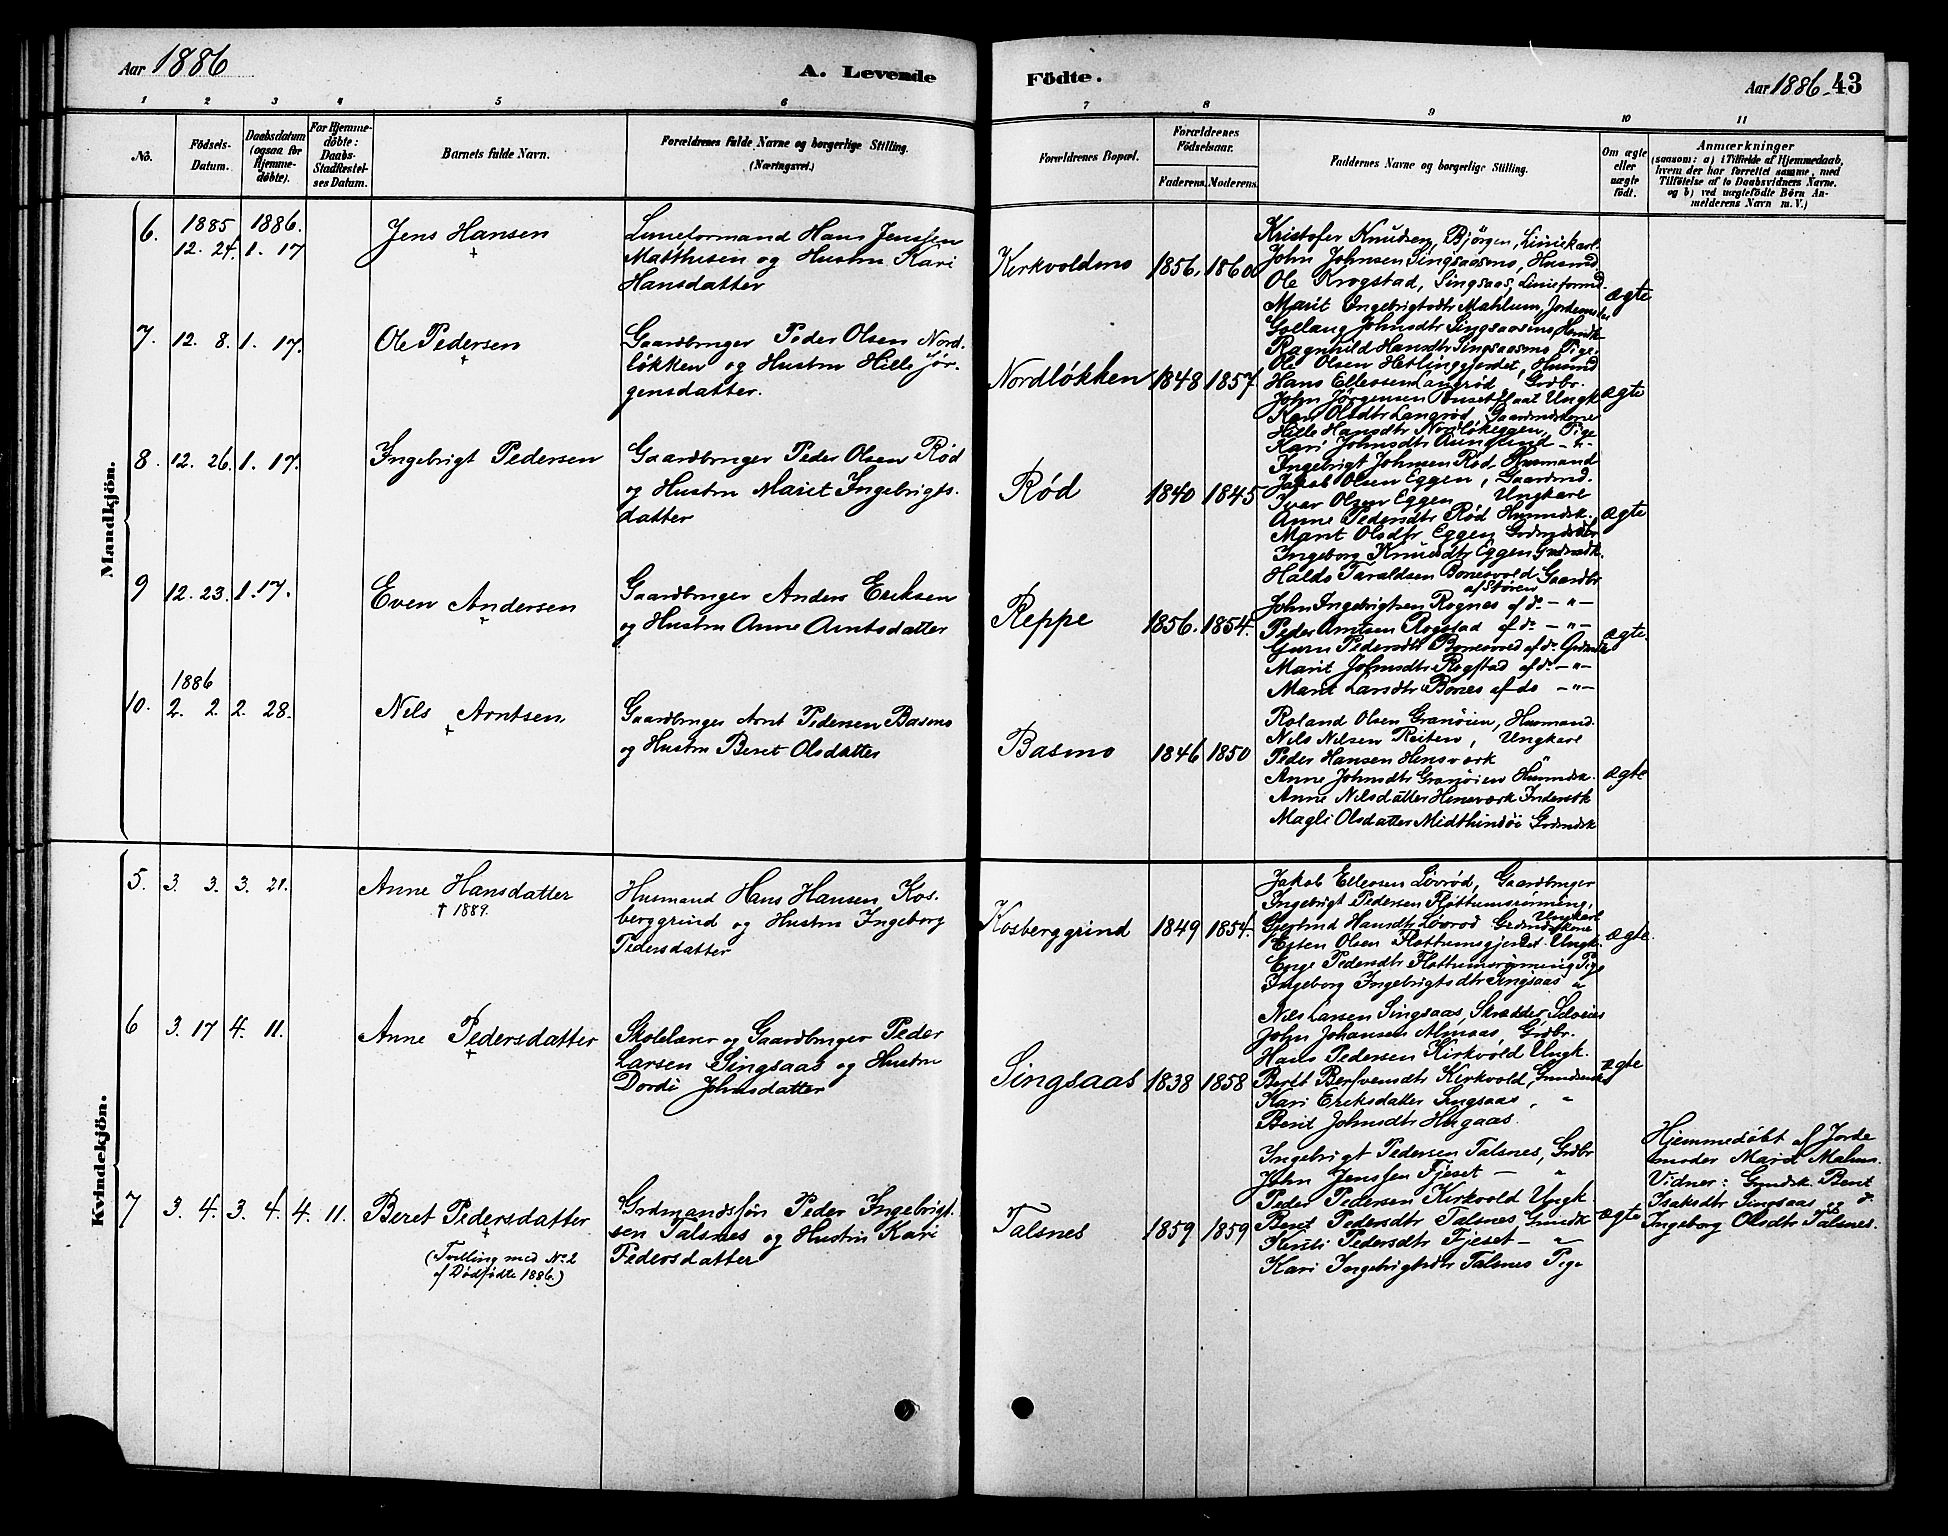 Aar 1886
A. Levende
Födte.
Aar 1886. 43
1 2 3 4 5 6 7 8 9 10 11
No.
Födsels-
Datum.
Daabsdatum
(ogsaa for
Hjemme-
döbte).
For Hjemme-
döbte:
Daabs-
Stadfæstel-
ses Datum.
Barnets fulde Navn.
Forældrenes fulde Navne og borgerlige Stilling.
(Næringsvei.)
Forældrenes Bopæl.
Forældrenes
Födselsaar.
Faderens. Moderens.
Faddernes Navne og borgerlige Stilling.
Om ægte
eller
uægte
födt.
Anmærkninger
(saasom: a) i Tilfælde af Hjemmedaab,
hvem der har forrettet samme, med
Tilföielse af to Daabsvidners Navne.
og b) ved uægtefödte Börn An-
melderens Navn m. V.)
Mandkjön.
6.
1885
12. 24.
1886.
1. 17
Jens Hansen
+
Linieformand Hans Jenssen
Matthesen og Hustru Kari
Hansdatter
Kirkvoldmo
1856. 1860
Kristofer Knudsen, Bjørgen, Liniekarl
John Johnsen Singsaasmo, Husmd
Ole Krogstad, Singsaas, Linieformd.
Marit Ingebrigtsdtr Mahlum, Jordemoder
Johnsdtr Singsaasmo, Husmdk
Ragnhild Hansdtr Singsaasmo, Pige.
ægte
7. 12. 8. 1. 17.
Ole Pedersen
+
Gaardbruger Peder Olsen Nord-
løkken og Hustru Hille Jør-
gensdatter.
Nordløkken
1848 1857.
Ole Olsen Hetlingjordet, Husmd
Hans Ellefsen Langrød, Grdbr.
John Jørgensen Ungk
Kari Olsdtr Langrød, Gaardmdskone
Hille Hansdtr Nordløkeggen, Pige
Kari Johnsdtr
ægte
8. 12. 26. 1. 17.
Ingebrigt Pedersen
Gaardbruger Peder Olsen Rød
og Hustru Marit Ingebrigts-
datter
Rød
1840 1845
Ingebrigt Johnsen Rød Husmand
Jakob Olsen Eggen, Gaardmd.
Ivar Olsen Eggen Ungkarl
Anne Pedersdtr Rød Husmdsk.
Marit Olsdtr Eggen
Ingeborg Knudsdtr Eggen Grdmdk.
ægte
9 12. 23. 1. 17.
Even Andersen
+
Gaardbruger Anders Eriksen
og Hustru Anne Arntsdatter
Reppe
1856. 1854.
Haldo Taraldsen Bonesvold Gaardbr
af Støren
John Ingebrigtsen Rognes af do – " –
Peder Arntsen Rogstad af do – " –
Guru Pedersdtr Bonesvold af do Grdmdk
Marit Johnsdtr Rogstad af do – " –
Marit Larsdtr Bones af do – " –
ægte
10.
1886
2. 2. 2. 28.
Nils Arntsen
+
Gaardbruger Arnt Pedersen Basmo
og Hustru Beret Olsdatter
Basmo
1846 1850
Roland Olsen Granøien, Husmand.
Nils Nilsen Reiten, Ungkarl
Peder Hansen Hensværk "
Anne Johnsdtr Granøien Husmdsk.
Anne Nilsdatter Hensværk Inderstk
Magli Olsdatter Midthindøi Grdmdsk
ægte
Kvindekjön.
5. 3. 3. 3. 21.
Anne Hansdatter
† 1889.
Husmand Hans Hansen Kos-
berggrind og Hustru Ingeborg
Pedersdatter
Kosberggrind
1849 1854.
Jakob Ellefsen Løvrød, Gaardbruger
Ingebrigt Pedersen Flottumsrømning,
Ungkarl
Gjertrud Hansdtr Løvrød Grdmdskone
Esten Olsen Flottumsgjerdet Ungk.
Pedersdtr Flottumsrømning Pige
Ingeborg Ingebrigtsdtr Singsaas "
ægte.
6 3. 17 4. 11.
Anne Pedersdatter
+
Skolelærer og Gaardbruger Peder
Larsen Singsaas og Hustru
Dordi Johnsdatter
Singsaas
1838 1858
Nils Larsen Singsaas, Skrædder, Selveier
John Johansen Almaas, Grdbr.
Hans Pedersen Kirkvold Ungk.
Berit Kirkvold,
Kari Eriksdatter Singsaas, "
Berit Johnsdtr Hugaas.
ægte
7 3. 4. 3. 4. 4. 11.
Beret Pedersdatter
+
(Tvilling med No 2
af Dødfødte 1886.)
Grdmandssøn Peder Ingebrigt-
sen Talsnes og Hustru Kari
Pedersdatter
Talsnes
1859 1859
Ingebrigt Pedersen Talsnes, Grdbr
John Jenssen Fjeset – "
Peder Pedersen Kirkvold Ungk.
Berit Pedersdtr Talsnes, Grmdk
Pedersdtr Fjeset – "
Kari Ingebrigtsdtr Talsnes Pige
ægte
Hjemmedøbt af Jorde
moder Marit Malum.
Vidner: Grmdsk. Berit
Isaksdtr Singsaas og
Ingeborg Olsdtr Talsnes.